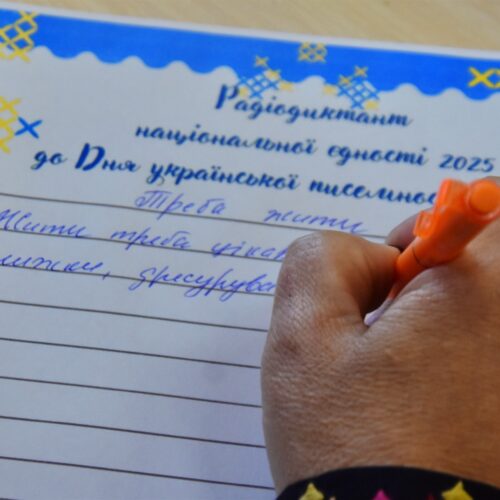 Радіодиктант
національної єдності 2025
до Дня української писемнос
Треба жити
Жити треба цікав
лижах, дресирув